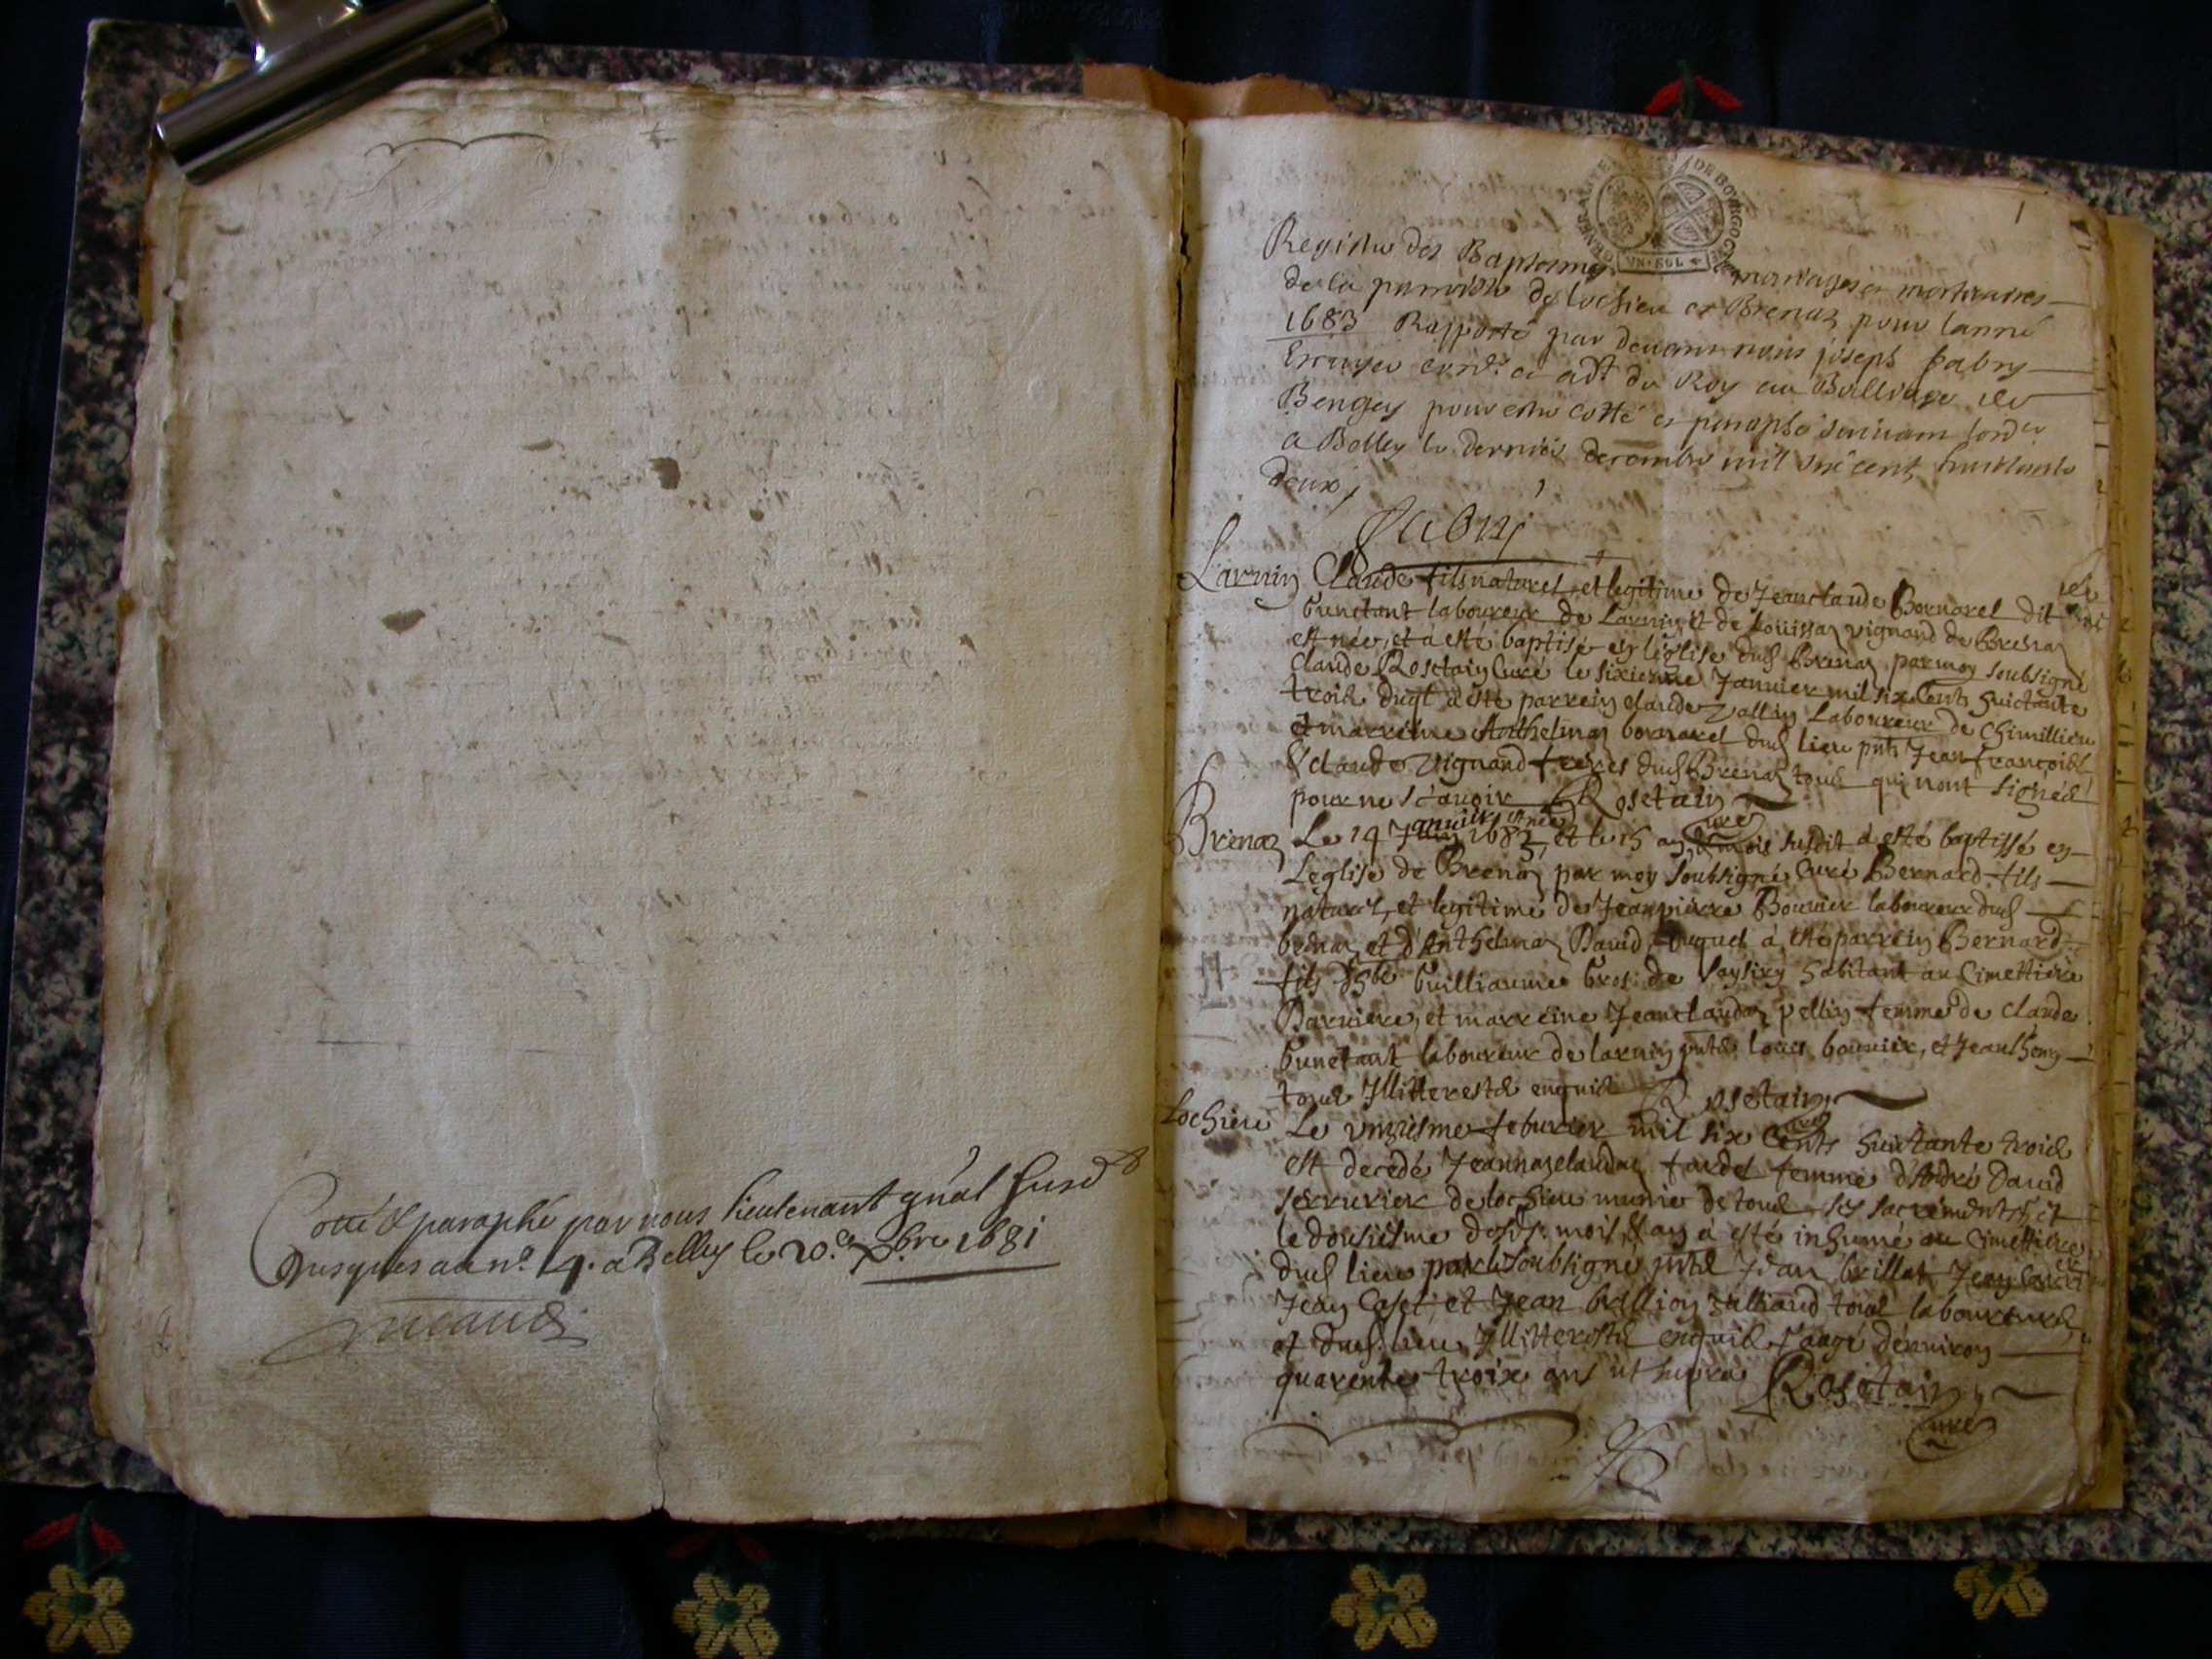 Cotté & paraphé par nous lieutenant gnâl susd
Jusques au n.º 4. a Belley le 20.e Xbre 1681
1
GENERALITE DE BOVRGOGNE
VN·SOL
Registre des Baptesmes mariages et mortuaires
de la parroisse de lochieu et Brenaz pour lanné
1683 Rapporté par deuant nous joseph fabry
Escuyer conr. et adt. du Roy au Balliage de
Beugey pour estre cotté et paraphé suiuant lord
a Belley le dernier decembre mil six cent huictante
deux
fabry
Larnin Claude fils naturel, et legitime de Jeanclaude Bornarel dit
Gunctant laboureur de Larnin et de Loüissaz vignand de Brenaz
est née, et à esté baptisé en léglise dud Brenaz par moy soubsigné
Claude Rosetain Curé le sixieme Januier mil six Cents huictante
trois à esté parrein claude Laboureur de Chimillieu
et marreine Anthelmaz bornarel dud lieu pnts Jean francois
& claude vignand freres dud Brenaz tous qui nont signés
pour ne scauoir Rosetain
Curé
Brenaz Le 14 Januier 1683, et le 15 an, & mois susdit à esté baptissé en
Leglise de Brenaz par moy soubsigné Curé Bernard fils
naturel, et legitime de Jeanpierre Bouuier laboureur dud
brenaz et d'Anthelmaz Dauid, à esté parrein Bernard
fils Guilliaume Gros de habitant au Cimettiere
et marreine Jeanclaudaz pellin femme de claude
Gunctant laboureur de larnin pnts louis bouuier, et Jean
tous Jllitterestés enquis Rosetain
Curé
Lochieu Le vnziesme feburier mil six Cents huictante trois
est decedé Jeannazclaudaz fardel femme d'André Dauid
serrurier de lochieu munie de tous ses sacrements, et
le dousiesme desd. mois, & an à esté inhumé au Cimettiere
dud lieu par le soubsigné pnts Jean brillat,
Jean Caset, et Jean brillion tous laboureurs
et dud. lieu Jllitterestés enquis, aagé denuiron
quarente troix ans ut supra Rosetain
Curé